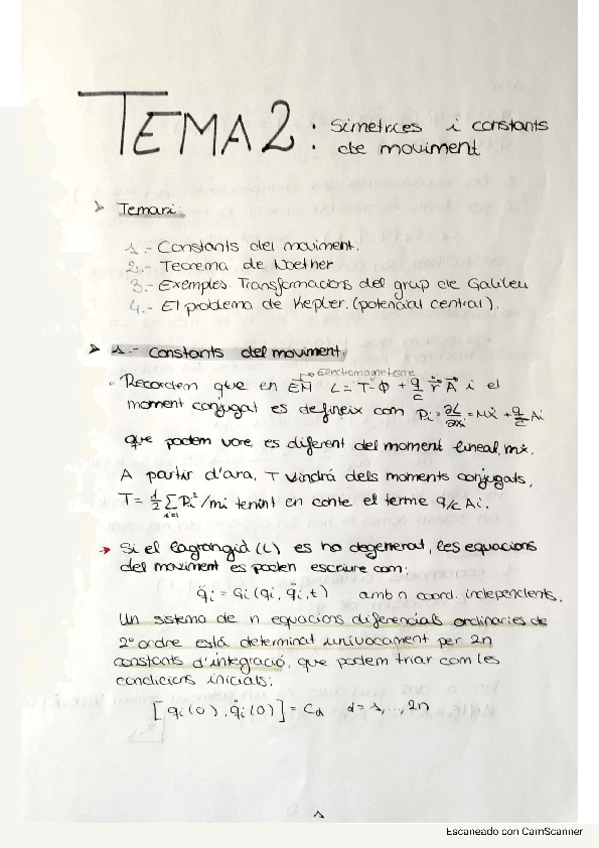 TEMA 2: Simetries i constants
de moviment
➤ Temari:
1.- Constants del moviment.
2.- Teorema de Noether
3.- Exemples Transformacions del grup de Galileu
4.- El problema de Kepler. (potencial central).
➤ 1.- Constants del moviment.
↱ Electromagnetisme
• Recordem que en EM L = T - Φ + q/c ṙ A i el
moment conjugat es defineix com Pi = ∂L/∂ẋi = mẋ + q/c Ai
que podem vore es diferent del moment lineal, mẋ.
A partir d'ara, T vindrá dels moments conjugats,
T = 1/2 ∑ Pi²/mi tenint en conte el terme q/c Ai.
→ Si el lagrangià (L) es no degenerat, les equacions
del moviment es poden escriure com:
q̈i = Gi (qi, q̇i, t) amb n coord. independents.
Un sistema de n equacions diferencials ordinaries de
2º ordre está determinat unívocament per 2n
constants d'integració, que podem triar com les
condicions inicials:
[qi(0), q̇i(0)] = Cα α = 1, ..., 2n
1
Escaneado con CamScanner